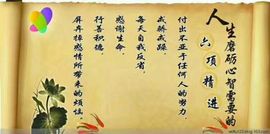 人生磨砺心智需要的
六项精进
付出不亚于任何人的努力.
戒骄戒躁.
每天自我反省.
感谢生命.
行善积德.
屏弃掉感情所带来的烦恼.